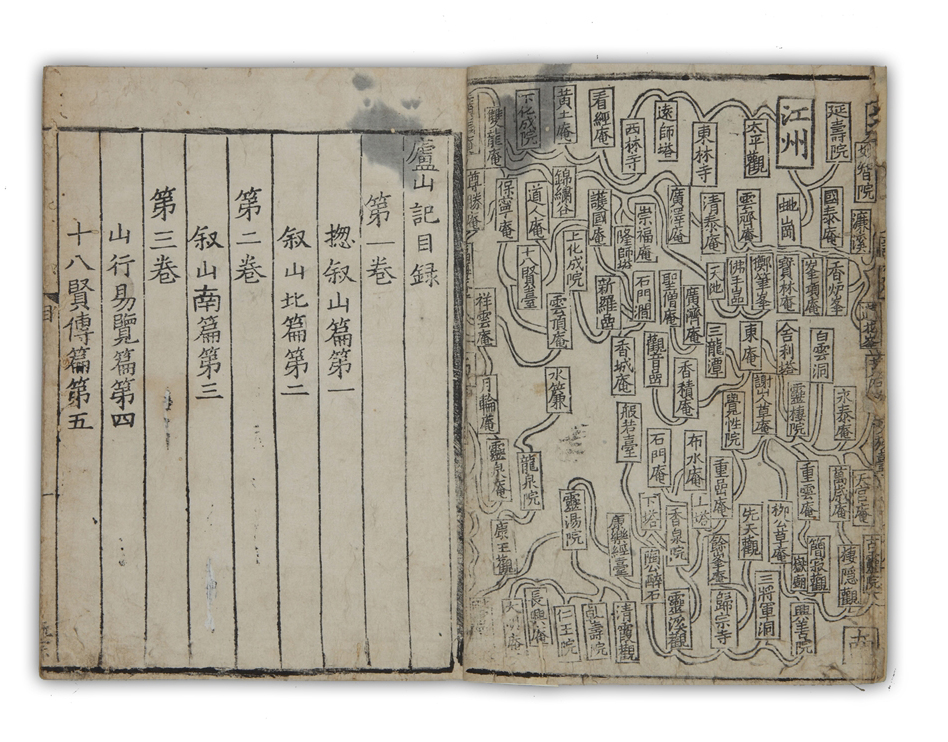 延壽院
江州
太平觀
東林寺
遠師塔
西林寺
看經庵
黃土庵
下化成院
雙龍庵
濂溪
國泰庵
虵崗
雲齊庵
清泰庵
廣澤庵
崇福庵
隆師塔
護國庵
錦繡谷
道人庵
保寧庵
尊勝庵
香炉峯
峯頂庵
寶林庵
擲筆峯
佛手嵓
天池
廣濟庵
聖僧庵
石門澗
新羅嵓
上化成院
十八賢臺
雲頂庵
祥雲庵
白雲洞
舍利塔
東庵
三龍潭
觀音嵓
香城庵
香積庵
水簾
月輪庵
永泰庵
靈棲院
謝公草庵
覺性院
般若臺
石門庵
布水庵
重嵓庵
龍泉院
靈泉庵
天宮庵
萬歲庵
重雲庵
柳公草庵
先天觀
上塔
香泉院
下塔
康樂經臺
靈湯院
康王觀
棲隱觀
簡寂觀
嶽廟
餘峯庵
陶公醉石
三將軍洞
興善院
歸宗寺
靈溪觀
清霞觀
仁王院
長興庵
廬山記目録
第一卷
揔叙山篇第一
叙山北篇第二
第二卷
叙山南篇第三
第三卷
山行易覽篇第四
十八賢傳篇第五